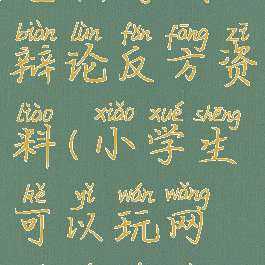 biàn lùn fǎn fāng zī
辩论反方资
liào xiǎo xué shēng
料(小学生
kě yǐ wán wǎng
可以玩网